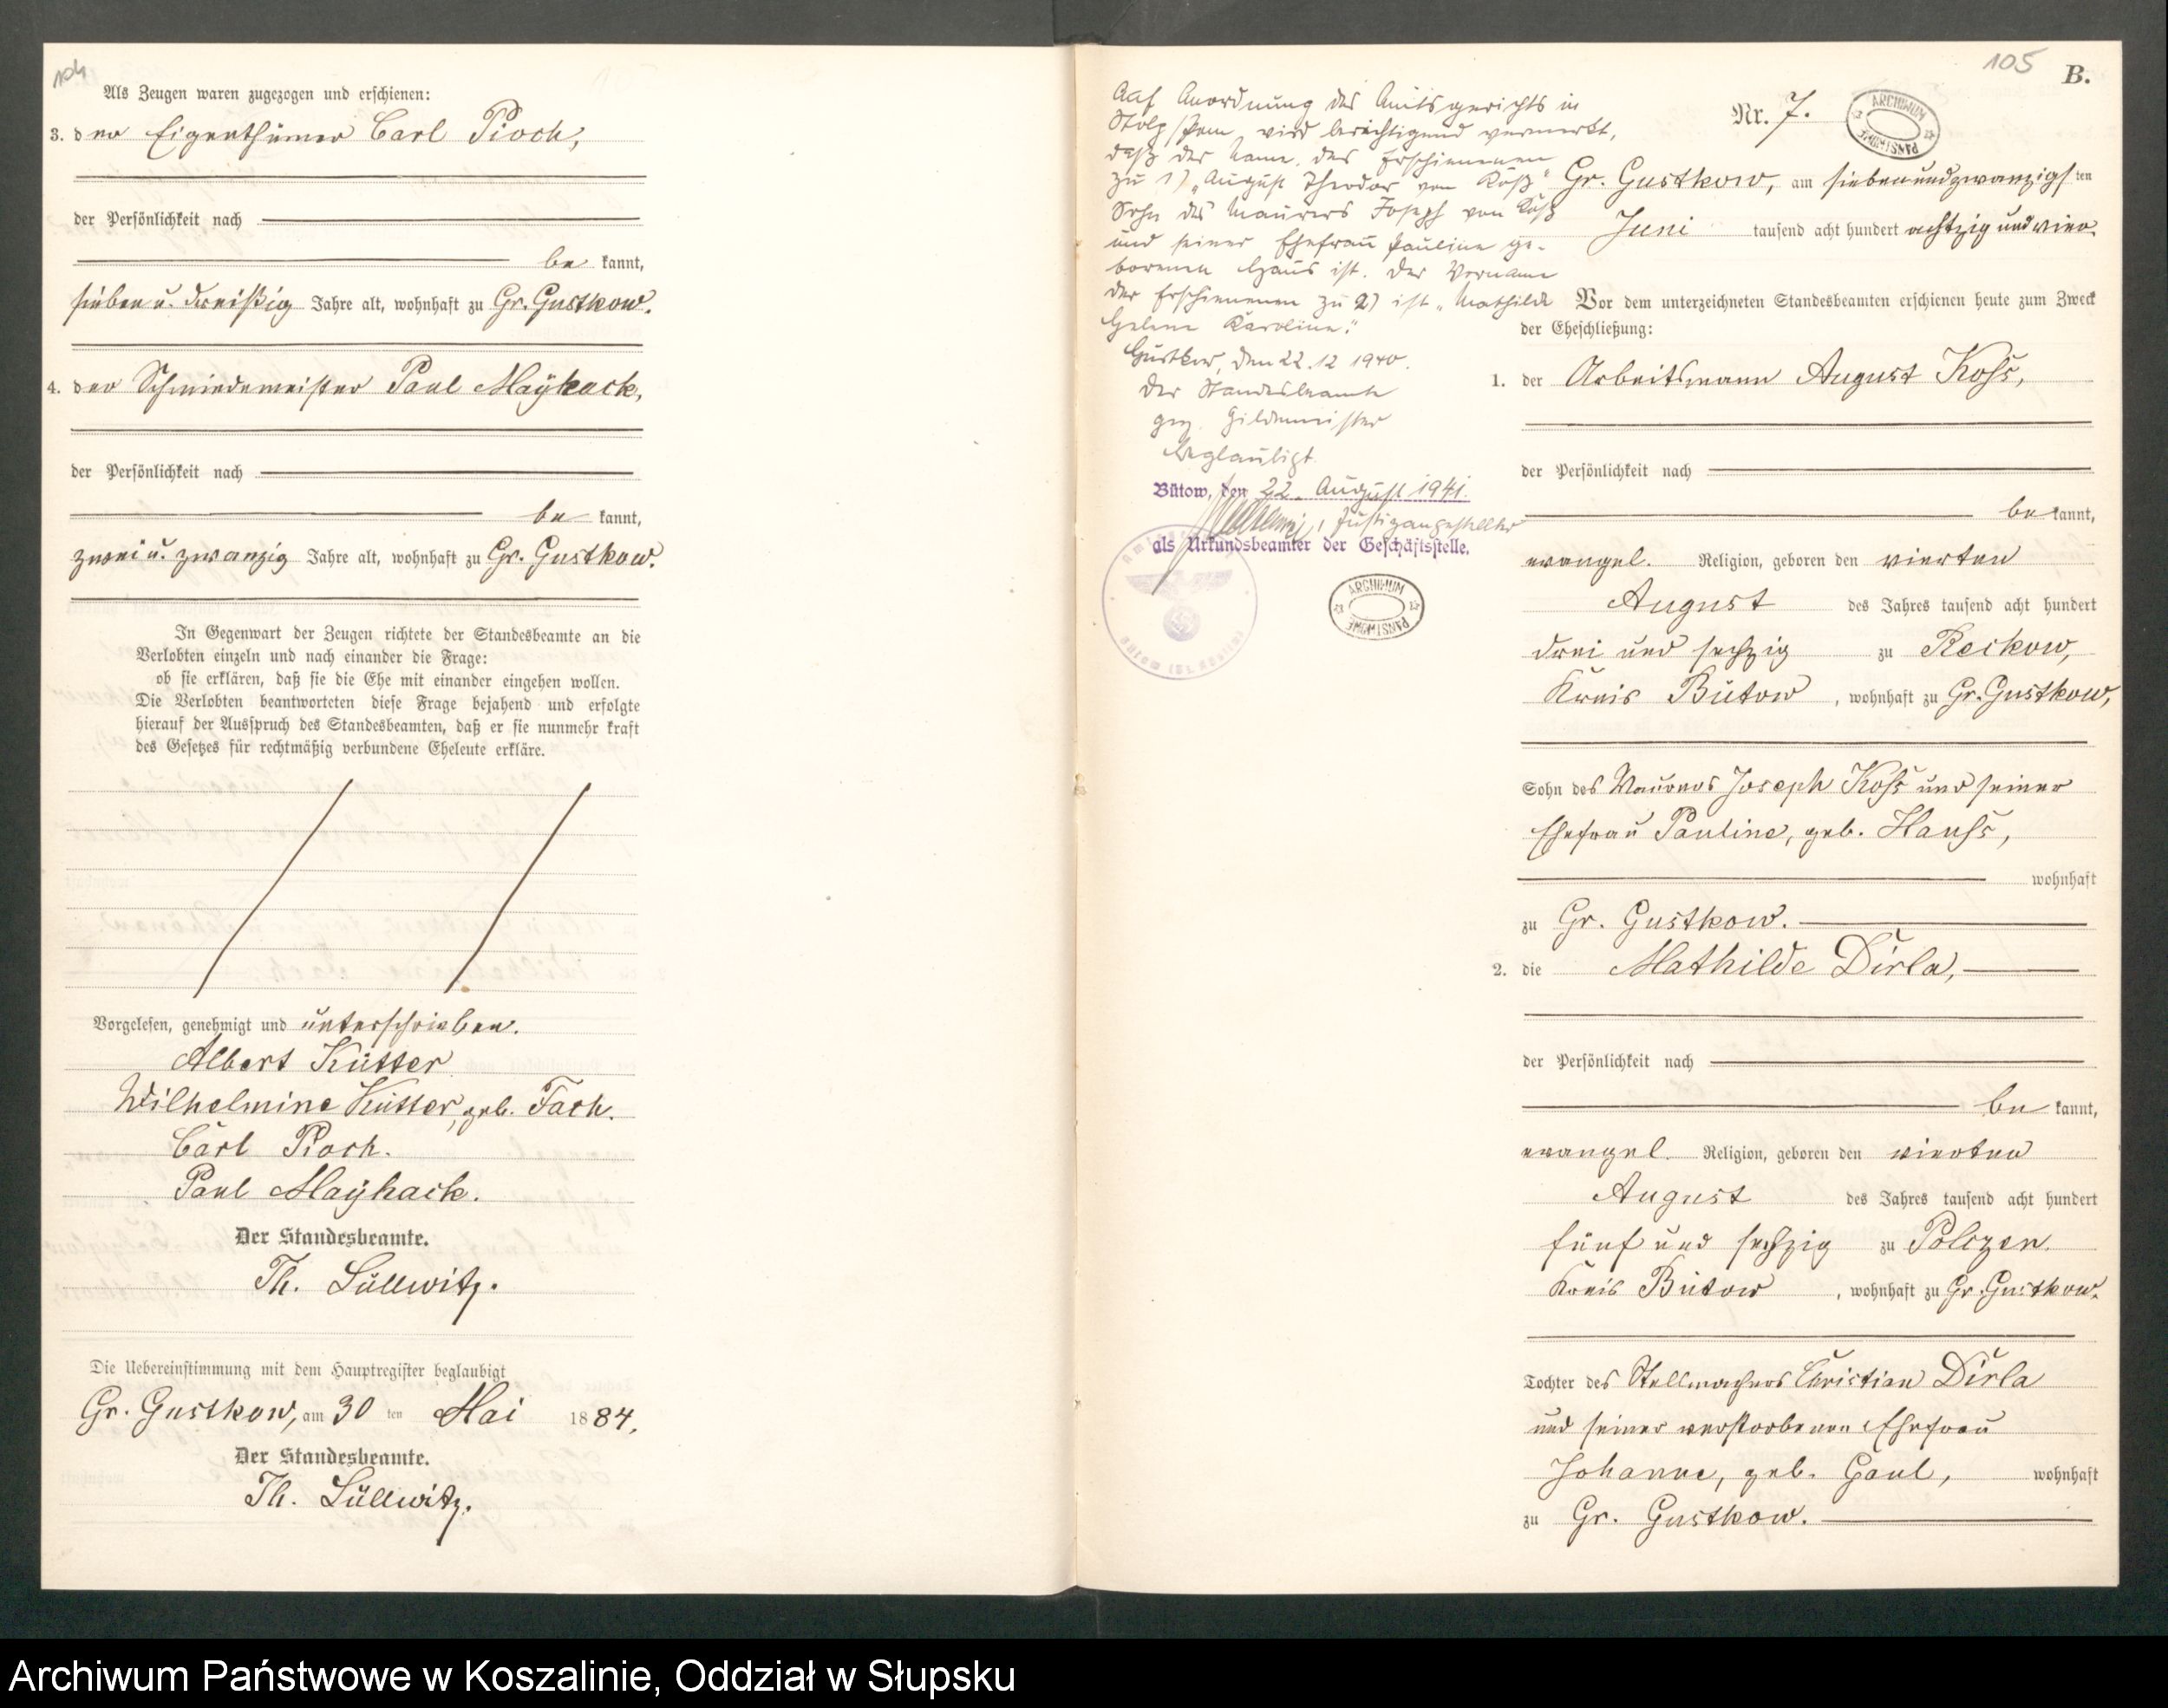 104
Als Zeugen waren zugezogen und erschienen:
3. der Eigenthümer Carl Pioch,
der Persönlichkeit nach
be kannt,
sieben u. dreißig Jahre alt, wohnhaft zu Gr. Gustkow.
4. der Schmiedemeister Paul Mayhack,
der Persönlichkeit nach
be kannt,
zwei u. zwanzig Jahre alt, wohnhaft zu Gr. Gustkow.
In Gegenwart der Zeugen richtete der Standesbeamte an die
Verlobten einzeln und nach einander die Frage:
ob sie erklären, daß sie die Ehe mit einander eingehen wollen.
Die Verlobten beantworteten diese Frage bejahend und erfolgte
hierauf der Ausspruch des Standesbeamten, daß er sie nunmehr kraft
des Gesetzes für rechtmäßig verbundene Eheleute erkläre.
Vorgelesen, genehmigt und unterschrieben.
Albert Kütter
Wilhelmine Kütter, geb. Fach.
Carl Pioch.
Paul Mayhack.
Der Standesbeamte.
Th. Lüllwitz.
Die Uebereinstimmung mit dem Hauptregister beglaubigt
Gr. Gustkow, am 30 ten Mai 1884,
Der Standesbeamte.
Th. Lüllwitz.
105
B.
Auf Anordnung des Amtsgerichts in
Stolp/Pom. wird berichtigend vermerkt,
daß der Name des Erschienenen
zu 1) „August Theodor von Koß"
Sohn des Maurers Joseph von Koß
und seiner Ehefrau Pauline ge-
borenen Hauß ist. Der Vorname
der Erschienenen zu 2) ist „Mathilde
Helene Karoline."
Gustkow, den 22.12 1940.
Der Standesbeamte
gez. Gildemeister
Beglaubigt
Bütow, den 22. August 1941.
Justizangestellter
als Urkundsbeamter der Geschäftsstelle.
ARCHIWUM
PAŃSTWOWE
Nr. 7.
ARCHIWUM
PAŃSTWOWE
Gr. Gustkow, am siebenundzwanzigsten
Juni tausend acht hundert achtzig und vier.
Vor dem unterzeichneten Standesbeamten erschienen heute zum Zweck
der Eheschließung:
1. der Arbeitsmann August Koß,
der Persönlichkeit nach
be kannt,
evangel. Religion, geboren den vierten
August des Jahres tausend acht hundert
drei und sechzig zu Reckow,
Kreis Bütow, wohnhaft zu Gr. Gustkow,
Sohn des Maurers Joseph Koß und seiner
Ehefrau Pauline, geb. Hauß,
wohnhaft
zu Gr. Gustkow.
2. die Mathilde Dirla,
der Persönlichkeit nach
be kannt,
evangel. Religion, geboren den vierten
August des Jahres tausend acht hundert
fünf und sechzig zu Polczen
Kreis Bütow, wohnhaft zu Gr. Gustkow.
Tochter des Stellmachers Christian Dirla
und seiner verstorbenen Ehefrau
Johanne, geb. Gaul, wohnhaft
zu Gr. Gustkow.
Archiwum Państwowe w Koszalinie, Oddział w Słupsku